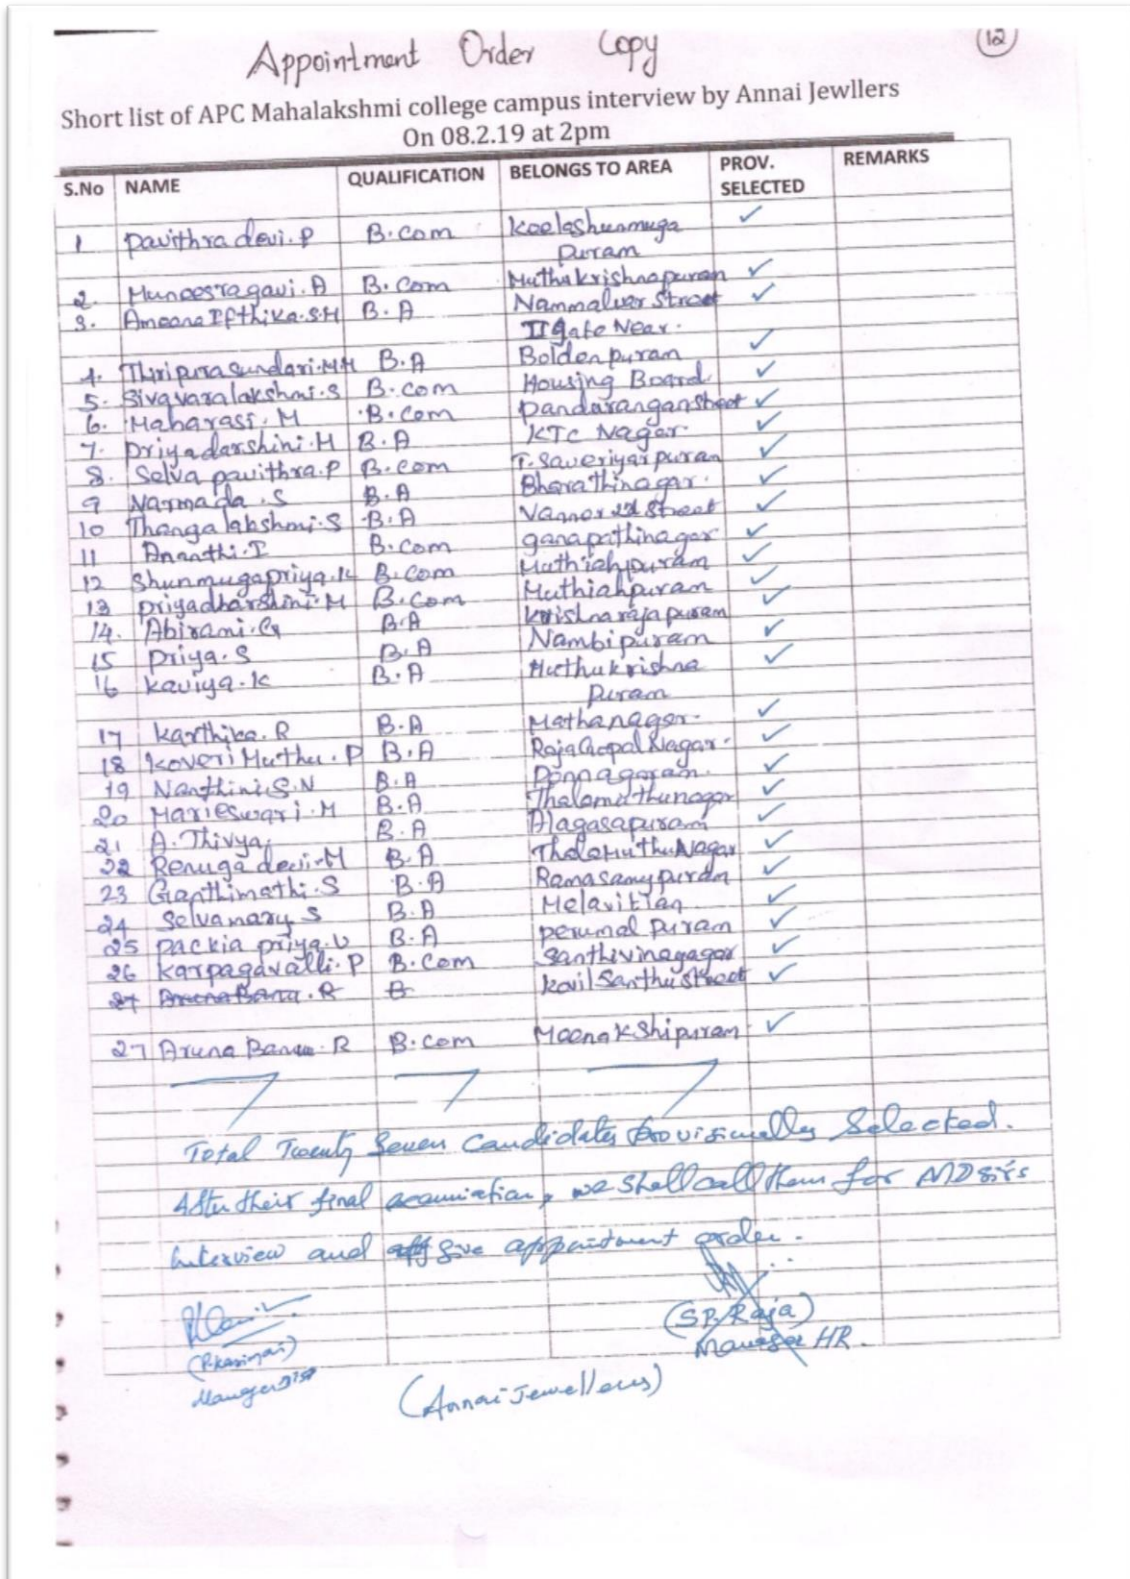 Appointment Order Copy
12
Short list of APC Mahalakshmi college campus interview by Annai Jewllers
On 08.2.19 at 2pm
S.No NAME QUALIFICATION BELONGS TO AREA PROV. SELECTED REMARKS
1 Pavithra devi.P B.Com Keelashunmuga
Puram ✓
2. Muneesragavi.A B.Com Muthukrishnapuram ✓
3. Ameena Ifthika.S.M B.A Nammalvar Street ✓
II gate Near.
4. Thiripura Sundari.MM B.A Boldenpuram ✓
5. Sivavaralakshmi.S B.com Housing Board ✓
6. Maharasi.M B.Com Pandarangan Street ✓
7. Priyadarshini.M B.A KTC Nagar ✓
8. Selva pavithra.P B.com T.Saveriyarpuram ✓
9 Narmada.S B.A Bharathinagar. ✓
10 Thangalakshmi.S B.A Vannar 2nd Street ✓
11 Ananthi.I B.Com ganapathinagar ✓
12 Shunmugapriya.K B.Com Muthiahpuram ✓
13 Priyadharshini.M B.Com Muthiahpuram ✓
14. Abirami.G B.A Krishnarajapuram ✓
15 Priya.S B.A Nambipuram ✓
16 Kaviya.K B.A Muthukrishna ✓
Puram
17 Karthika.R B.A Mathanagar. ✓
18 Koveri Muthu.P B.A RajaGopal Nagar. ✓
19 Nanthini.S.N B.A Ponnagaram. ✓
20 Marieswari.M B.A Thalamuthunagar ✓
21 A.Thivya B.A Alagasapuram ✓
22 Renuga devi.M B.A ThalaMuthuNagar ✓
23 Ganthimathi.S B.A Ramasamypuram ✓
24 Selvamary S B.A Melavittan ✓
25 Packia priya.U B.A perumal Puram ✓
26 Karpagavalli.P B.Com Santhivinayagar ✓
27 Aruna Banu.R B Kovil Santhu Street ✓
27 Aruna Banu.R B.Com Meenakshipuram ✓
Total Twenty Seven Candidates Provisionally Selected.
After their final examination, we shall call them for MD sir's
Interview and give appointment order.
(S.P. Raja)
Manager HR.
Manager
(Annai Jewellers)